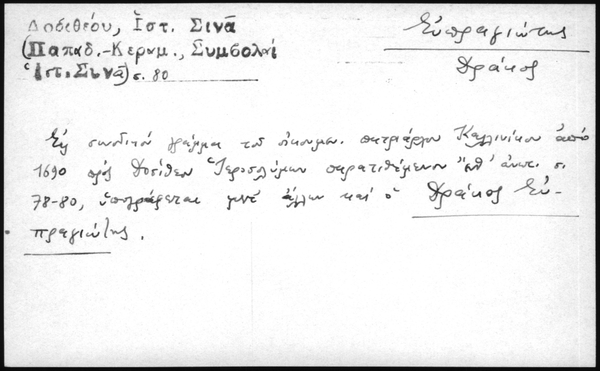 Δοσιθέου, Ἱστ. Σινᾶ
(Παπαδ.-Κεραμ., Συμβολαί
Ἱστ. Σινᾶ) σ. 80
Εὐπραγιώτης
Δράκος
Εἰς συνοδικόν γράμμα τοῦ οἰκουμ. πατριάρχου Καλλινίκου ἀπό
1690 πρός Δοσίθεον Ἱεροσολύμων παρατιθέμενον ἀνωτ. σ.
78-80, ὑπογράφεται μετ' ἄλλων καί ὁ Δράκος Εὐ-
πραγιώτης.